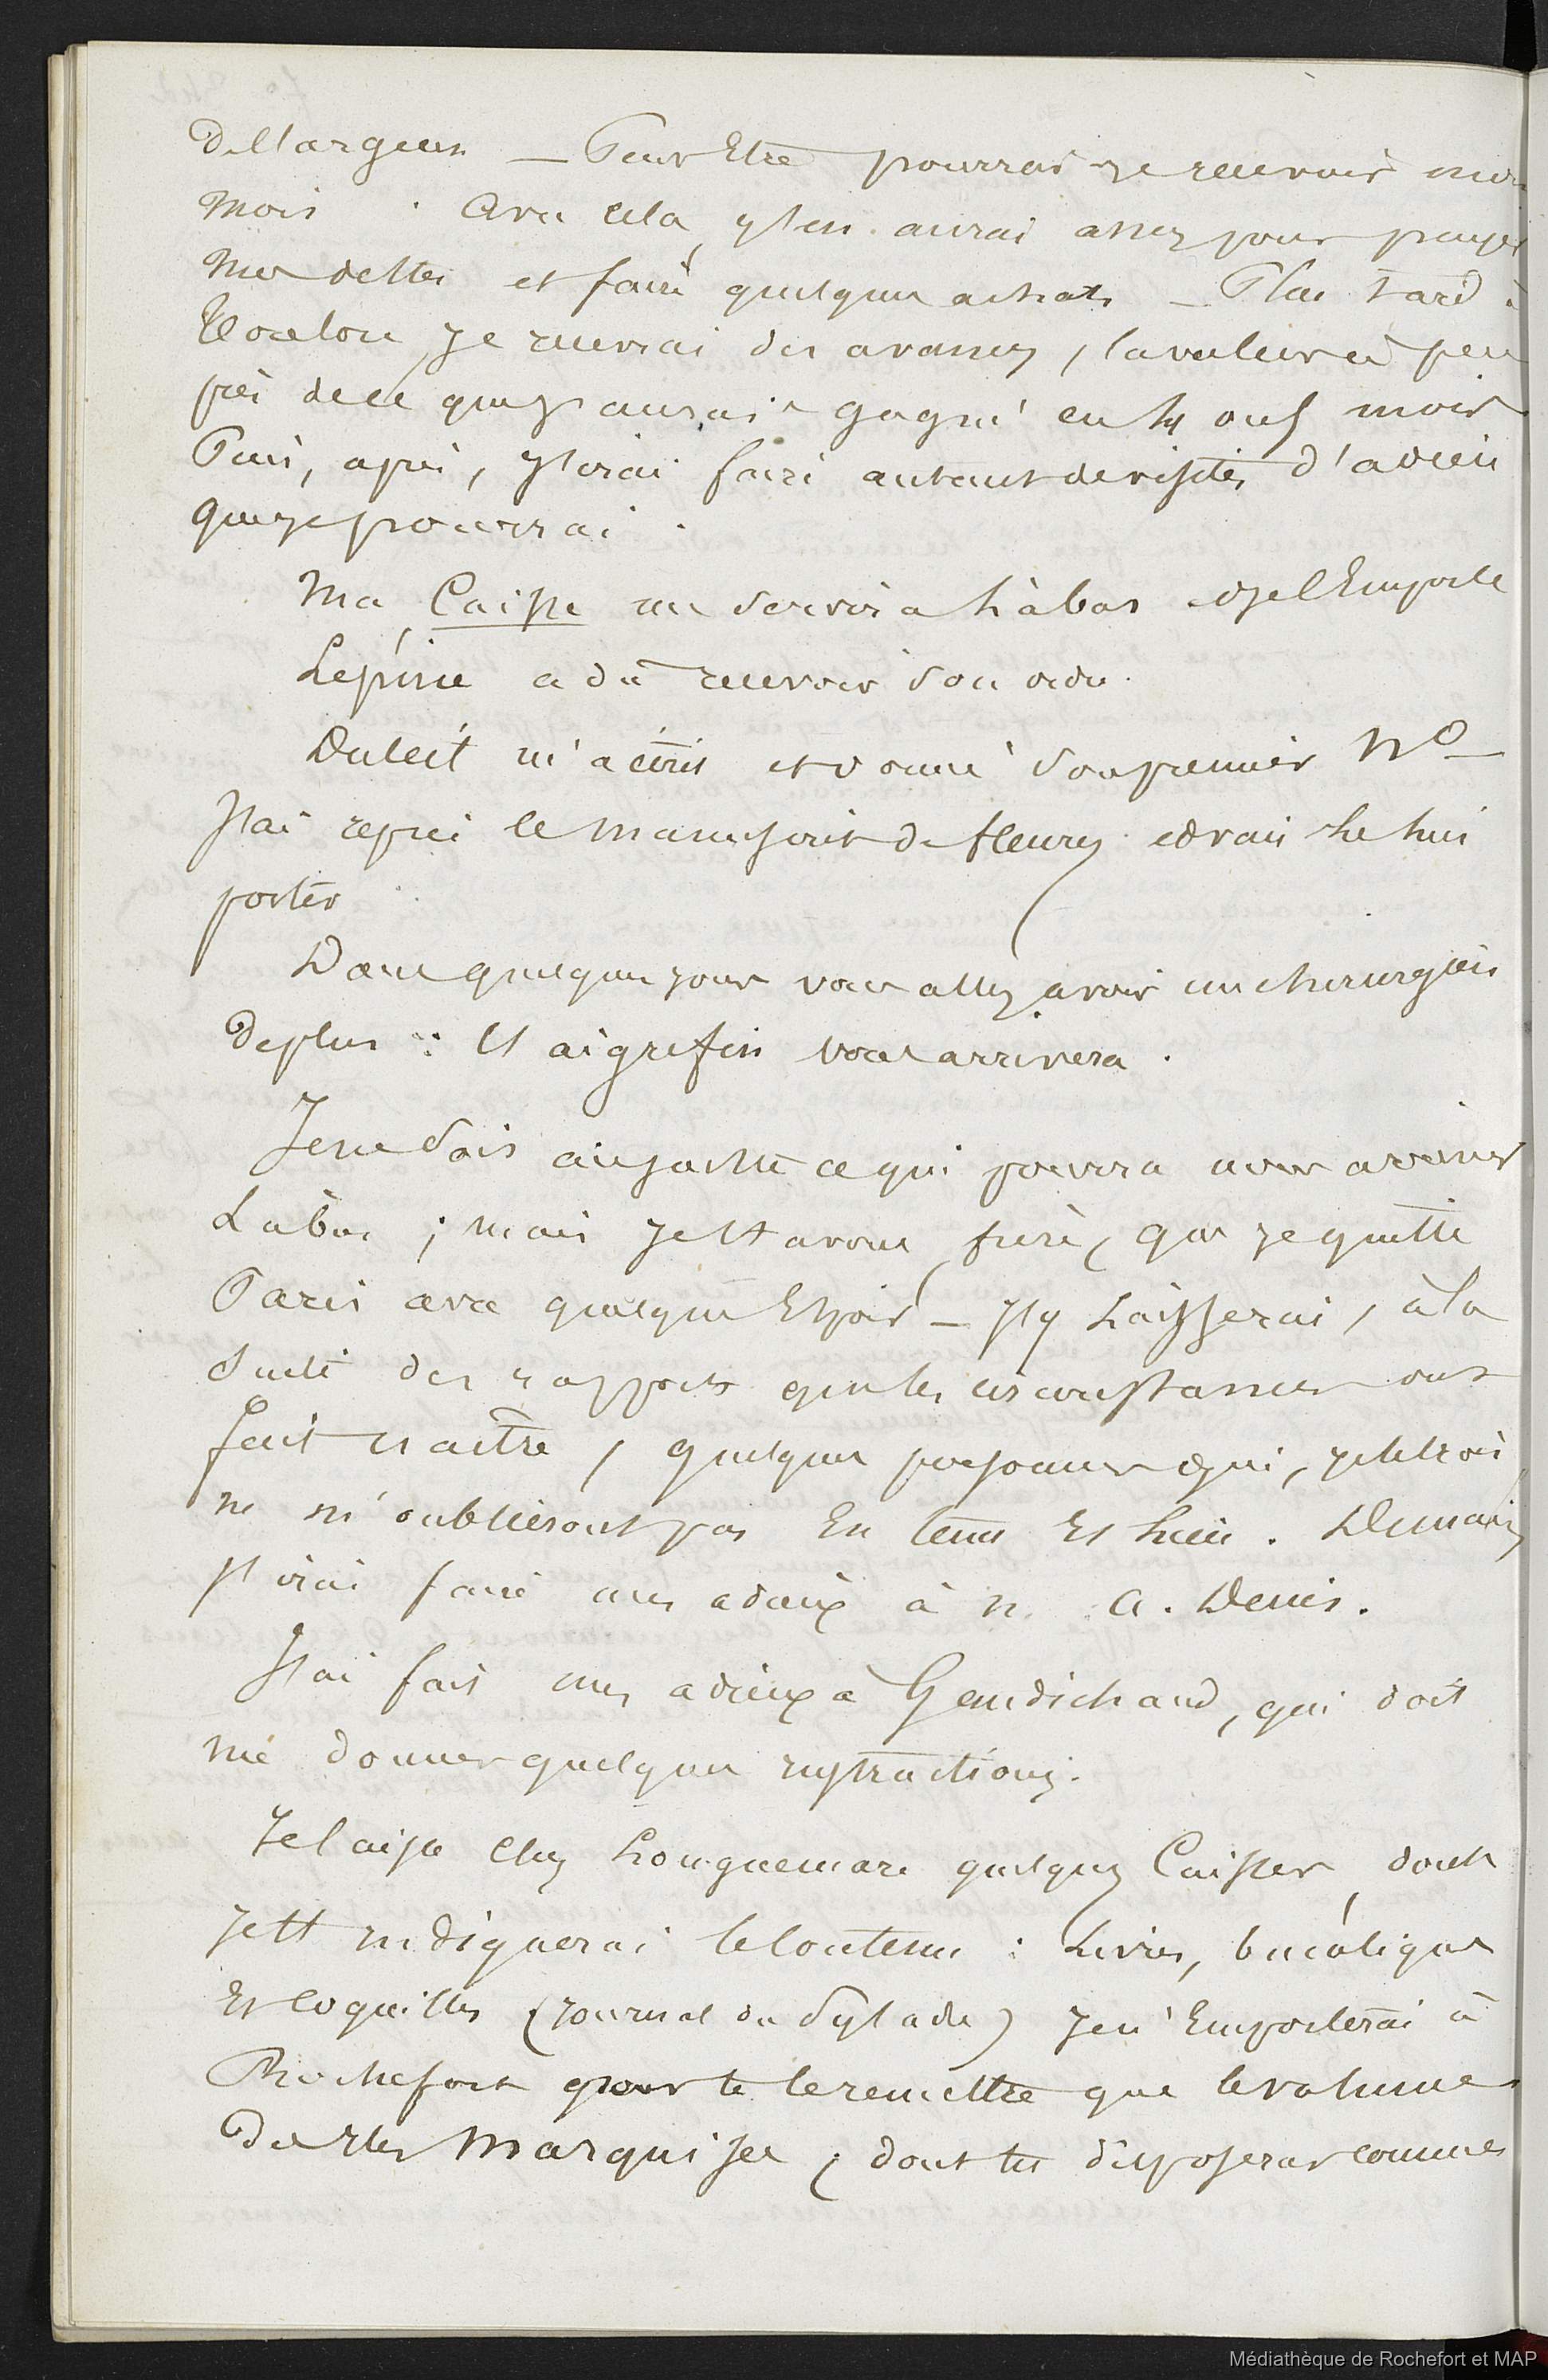 de l'argent — Peut Etre pourrai-je recevoir mon
Mois. Avec cela, j'en aurai assez pour payer
Mes dettes et faire quelques achats — Plus tard à
Toulon, je recevrai des avances, la valeur à peu
près de ce que j'aurais gagné en 4 ou 5 mois
Puis, après, j'irai faire autant de visites d'adieu
que je pourrai.
Ma Caisse me servira là bas et je l'Emporte
Lépine a dû recevoir son ordre.
m'a écrit et donné son premier No
J'ai repris le manuscrit de fleury et vais le lui
porter
Dans quelques jours vous allez avoir un chirurgien
de plus : L'aigrefin vous arrivera.
Je ne sais au juste ce qui pourra nous arriver
Là bas ; mais je t'avoue, frère, que je quitte
Paris avec quelqu'Espoir — J'y Laisserai, à la
suite des rapports que les circonstances ont
fait naître, quelques personnes qui, je le crois,
ne m'oublieront pas En tems Et lieu. Demain,
J'irai faire mes adieux à M. A. Denis.
J'ai fait mes adieux à Gaudichaud, qui doit
me donner quelques instructions.
Je laisse chez Longuemare quelques Caisses, dont
Je t'indiquerai le contenu : Livres, bucoliques
Et coquilles (journal du Pylade) Je n'Emporterai à
Rochefort pour te le remettre que le volume
des Iles Marquises, dont tu disposeras comme
Médiathèque de Rochefort et MAP